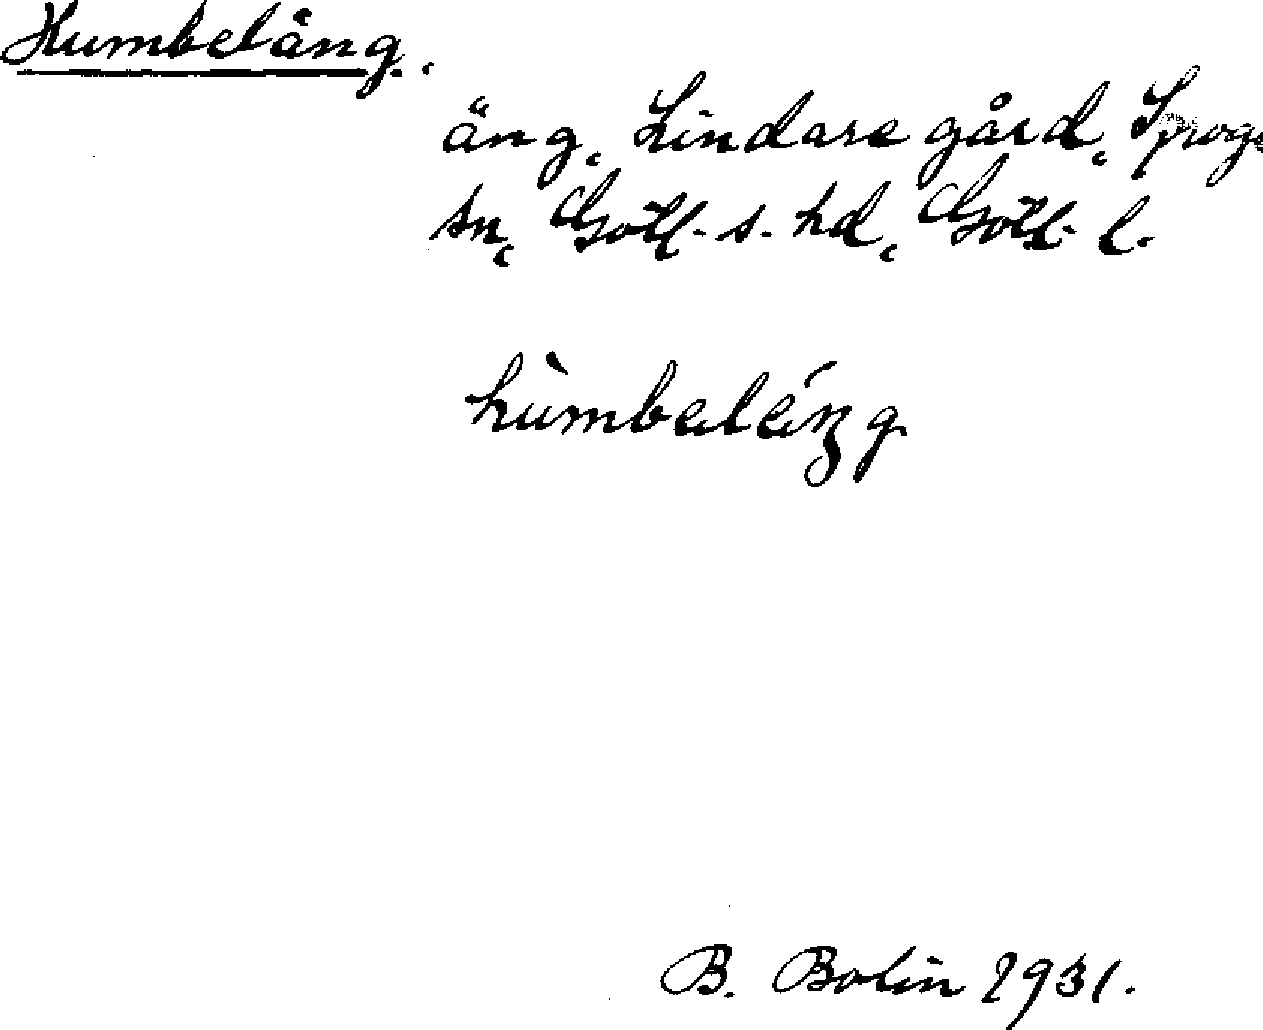 Humbeläng.
äng, Lindare gård, Sproge
sn, Gotl. s. hd, Gotl. l.
hùmbaléŋg
B. Bolin 1931.